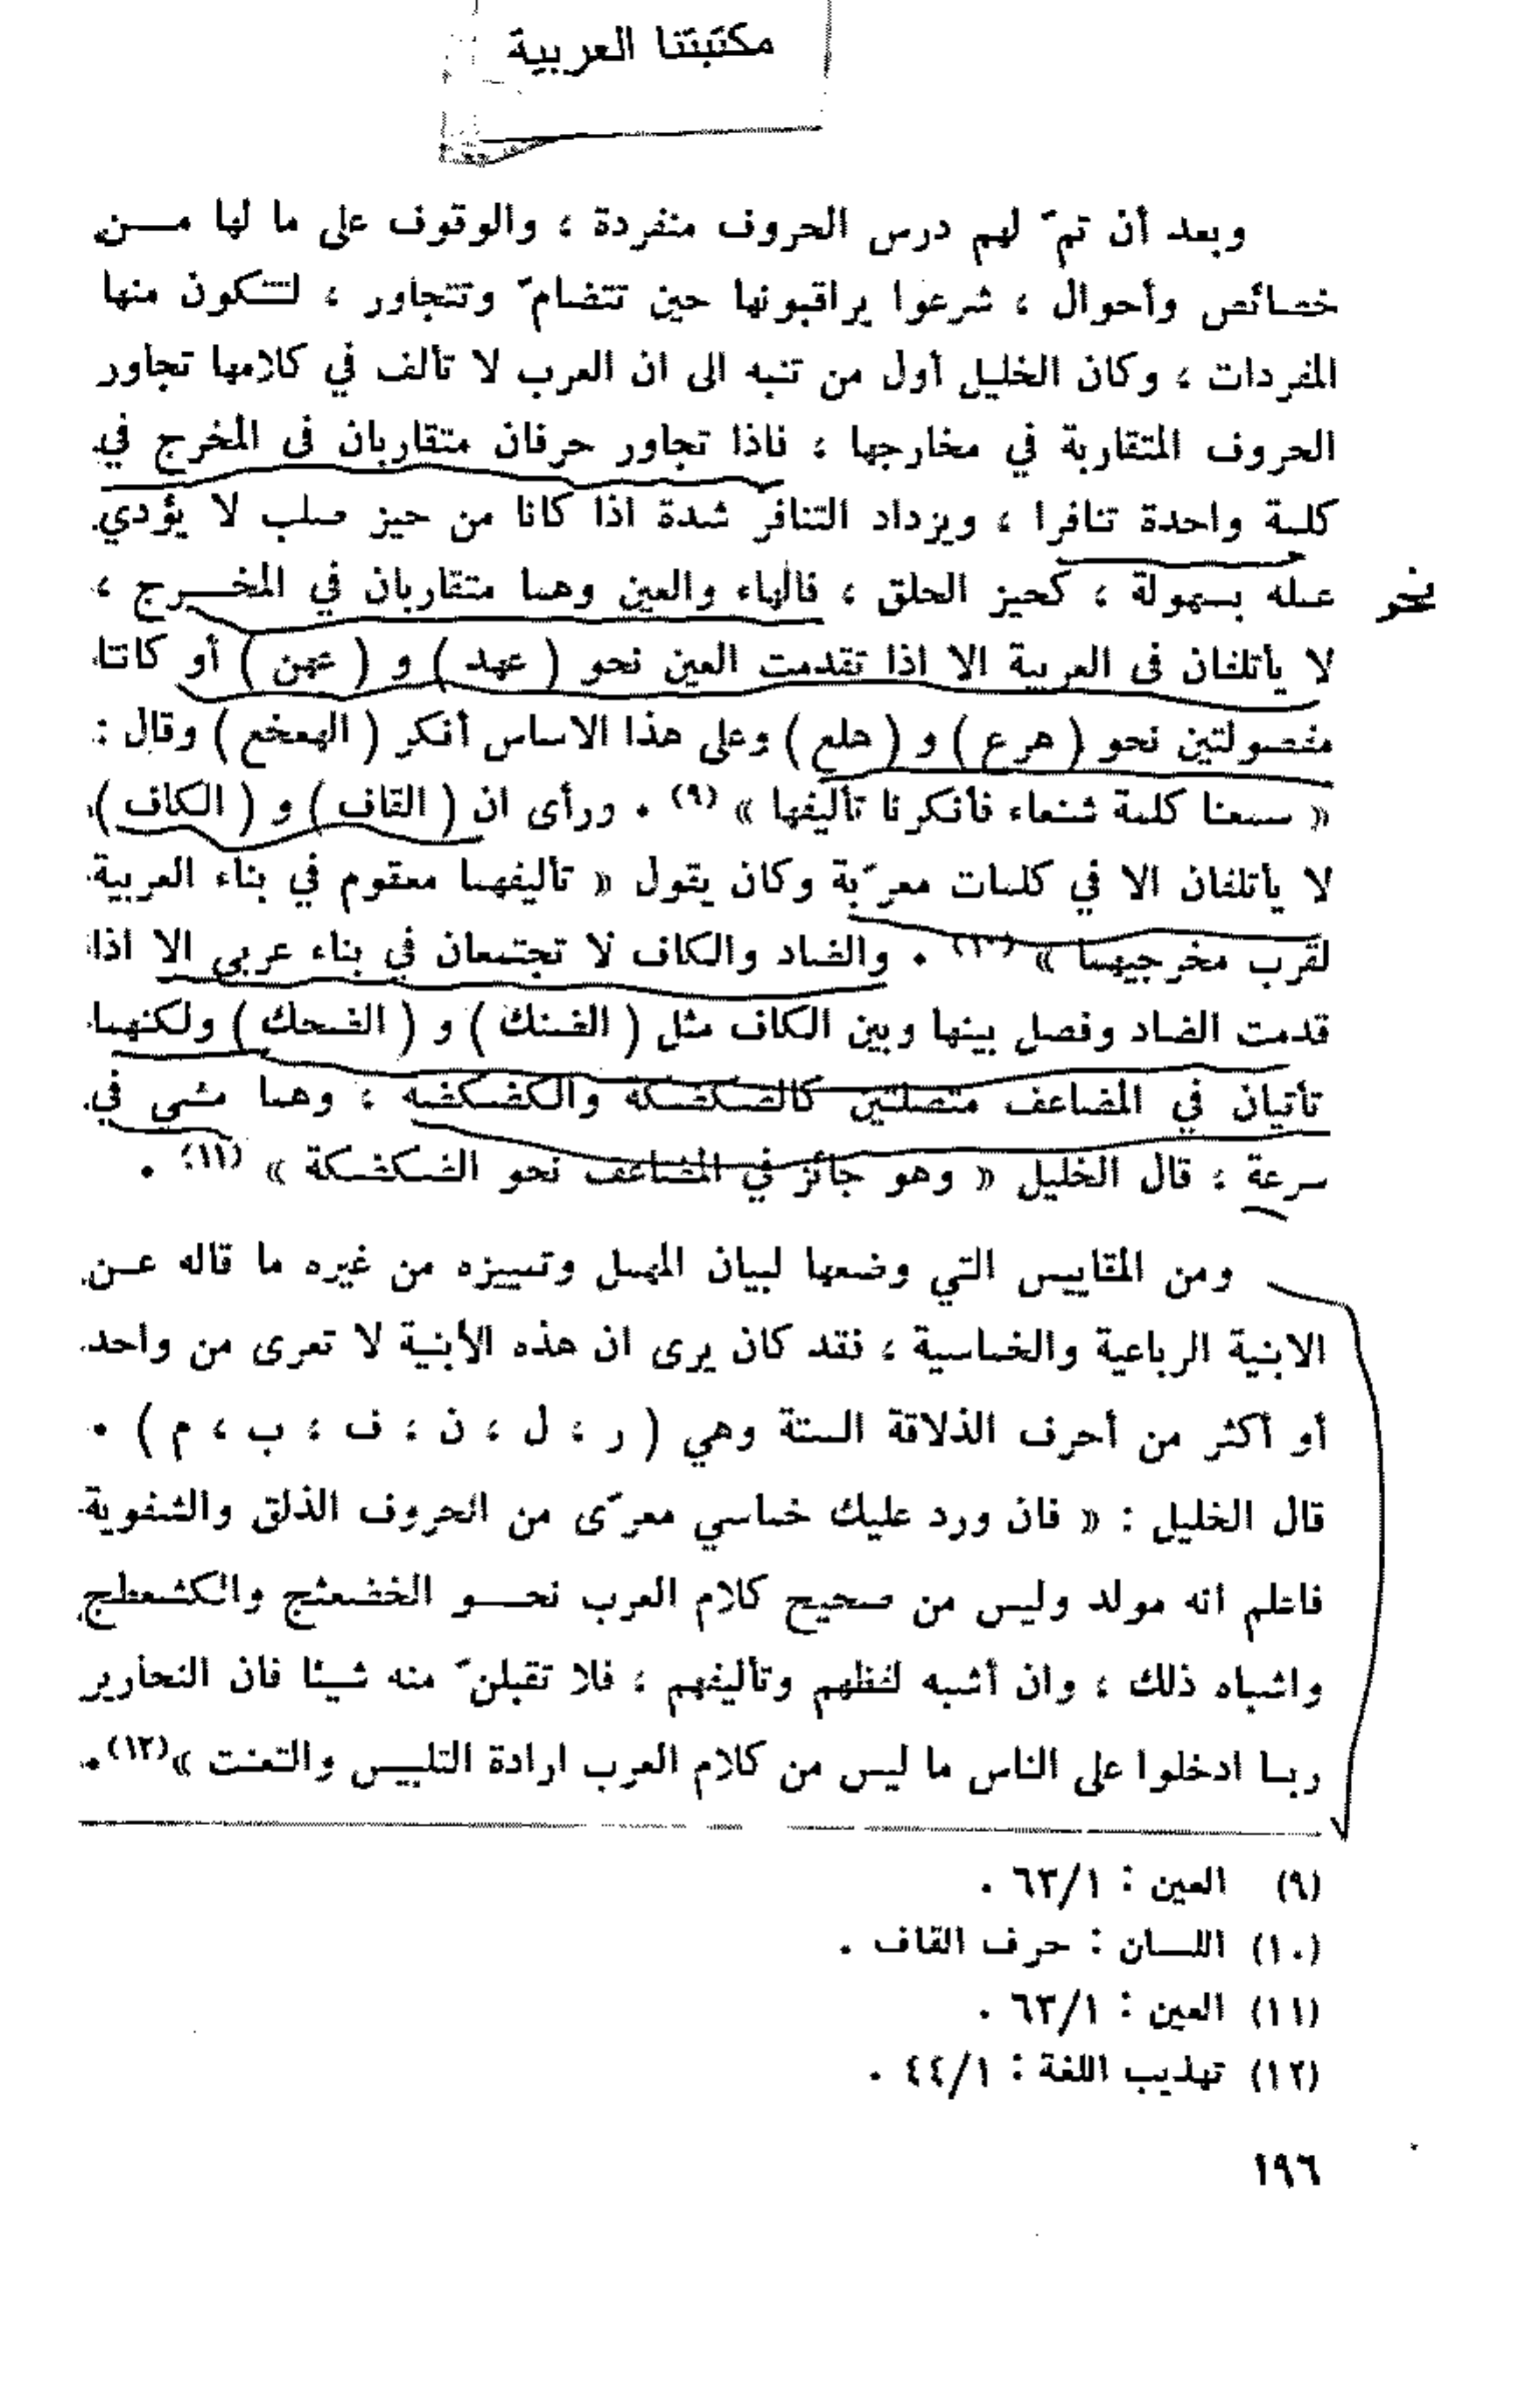 مكتبتنا العربية
وبعد أن تمّ لهم درس الحروف منفردة ، والوقوف على ما لها مــن
خصائص وأحوال ، شرعوا يراقبونها حين تتضامّ وتتجاور ، لتتكون منها
المفردات ، وكان الخليل أول من تنبه الى ان العرب لا تألف في كلامها تجاور
الحروف المتقاربة في مخارجها ، فاذا تجاور حرفان متقاربان في المخرج في
كلمة واحدة تنافرا ، ويزداد التنافر شدة اذا كانا من حيز صلب لا يؤدي
عمله بسهولة ، كحيز الحلق ، فالهاء والعين وهما متقاربان في المخــرج ،
نحو
لا يأتلفان في العربية الا اذا تقدمت العين نحو ( عهد ) و ( عهن ) أو كانتا
مفصولتين نحو ( هرع ) و ( هلع ) وعلى هذا الاساس أنكر ( الهعخع ) وقال :
« سمعنا كلمة شنعاء فأنكرنا تأليفها » (٩) . ورأى ان ( القاف ) و ( الكاف )
لا يأتلفان الا في كلمات معرّبة وكان يقول « تأليفهما معقوم في بناء العربية
لقرب مخرجيهما » (١٠) . والضاد والكاف لا تجتمعان في بناء عربي الا اذا
قدمت الضاد وفصل بينها وبين الكاف مثل ( الضنك ) و ( الضحك ) ولكنهما
تأتيان في المضاعف متصلتين كالضكضكة والكضكضة ، وهما مشي في
سرعة ، قال الخليل « وهو جائز في المضاعف نحو الضكضكة » (١١) .
ومن المقاييس التي وضعها لبيان المهمل وتمييزه من غيره ما قاله عــن
الابنية الرباعية والخماسية ، فقد كان يرى ان هذه الأبنية لا تعرى من واحد
أو أكثر من أحرف الذلاقة الستة وهي ( ر ، ل ، ن ، ف ، ب ، م ) .
قال الخليل : « فان ورد عليك خماسي معرّى من الحروف الذلق والشفوية
فاعلم انه مولد وليس من صحيح كلام العرب نحــو الخضعثج والكشعطج
واشباه ذلك ، وان أشبه لفظهم وتأليفهم ، فلا تقبلنّ منه شيئا فان النحارير
ربما ادخلوا على الناس ما ليس من كلام العرب ارادة التلبيس والتعنت »(١٢).
(٩) العين : ٦٣/١ .
(١٠) اللسان : حرف القاف .
(١١) العين : ٦٣/١ .
(١٢) تهذيب اللغة : ٤٤/١ .
١٩٦